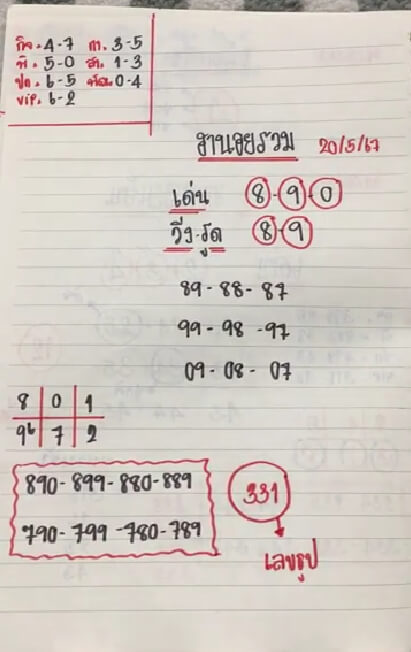 กิจ. 4-7 ก. 3-5
พิ. 5-0 สา. 1-3
ปก. 6-5 พัฒ. 0-4
VIP. 6-2
ฮานอยรวม 20/5/67
เด่น 8-9-0
วิ่ง-รูด 8-9
89-88-87
99-98-97
09-08-07
8 0 1
96 7 2
890-899-880-889
790-799-780-789
331
เลขธูป